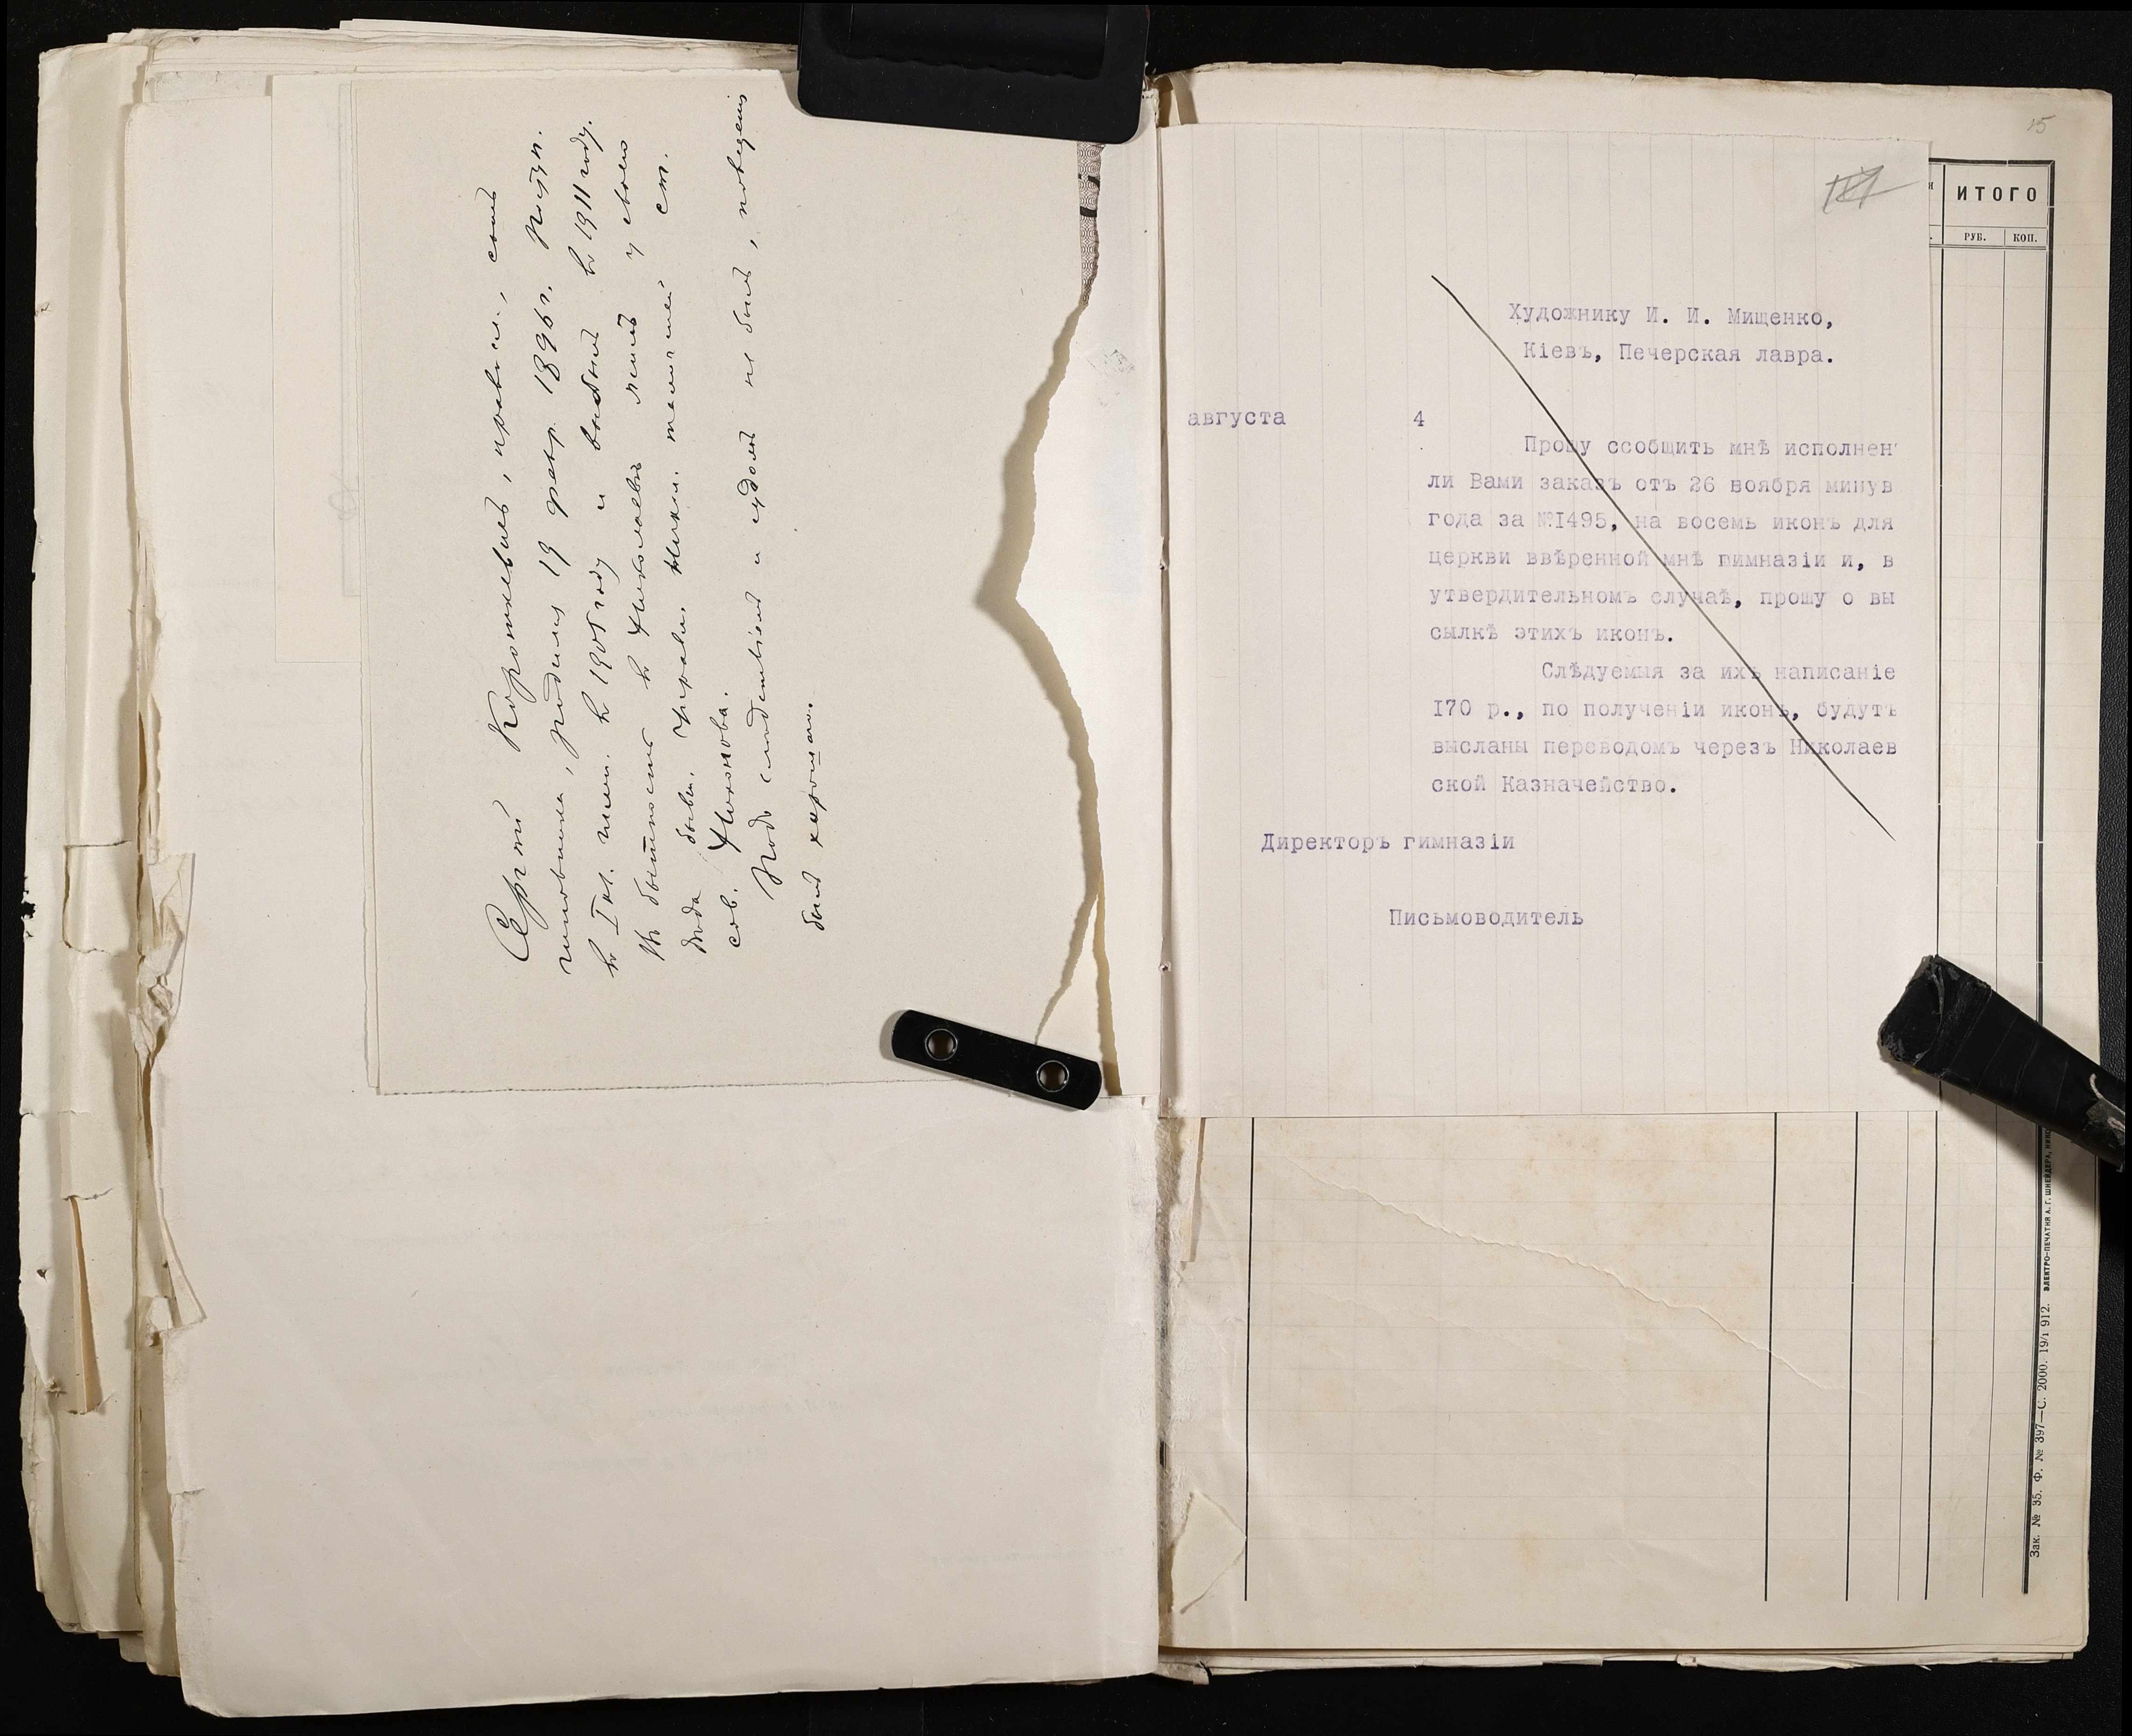 Сергѣй Коропкевичъ, православ., сынъ
чиновника, родился 19 февр. 1896 г. Поступ.
въ I кл. гимн. въ 1905 году и выбылъ въ 1911 году.
Въ бытность въ Николаевѣ жилъ у своего
дяди бывш. Управл. Никол. таможней ст.
сов. Никонова.
Подъ слѣдствіемъ и судомъ не былъ, поведенія
былъ хорошаго.
15
ИТОГО
РУБ. КОП.
Художнику И. И. Мищенко,
Кіевъ, Печерская лавра.
августа 4
Прошу ссобщить мнѣ исполнен
ли Вами заказъ отъ 26 ноября минув
года за №I495, на восемь иконъ для
церкви ввѣренной мнѣ гимназіи и, в
утвердительномъ случаѣ, прошу о вы
сылкѣ этихъ иконъ.
Слѣдуемыя за ихъ написаніе
I70 р., по полученіи иконъ, будутъ
высланы переводомъ черезъ Николаев
ской Казначейство.
Директоръ гимназіи
Письмоводитель
Зак. № 35. Ф. № 397—С. 2000. 19/I 912. ЭЛЕКТРО-ПЕЧАТНЯ А. Г. ШНЕЙДЕРА,